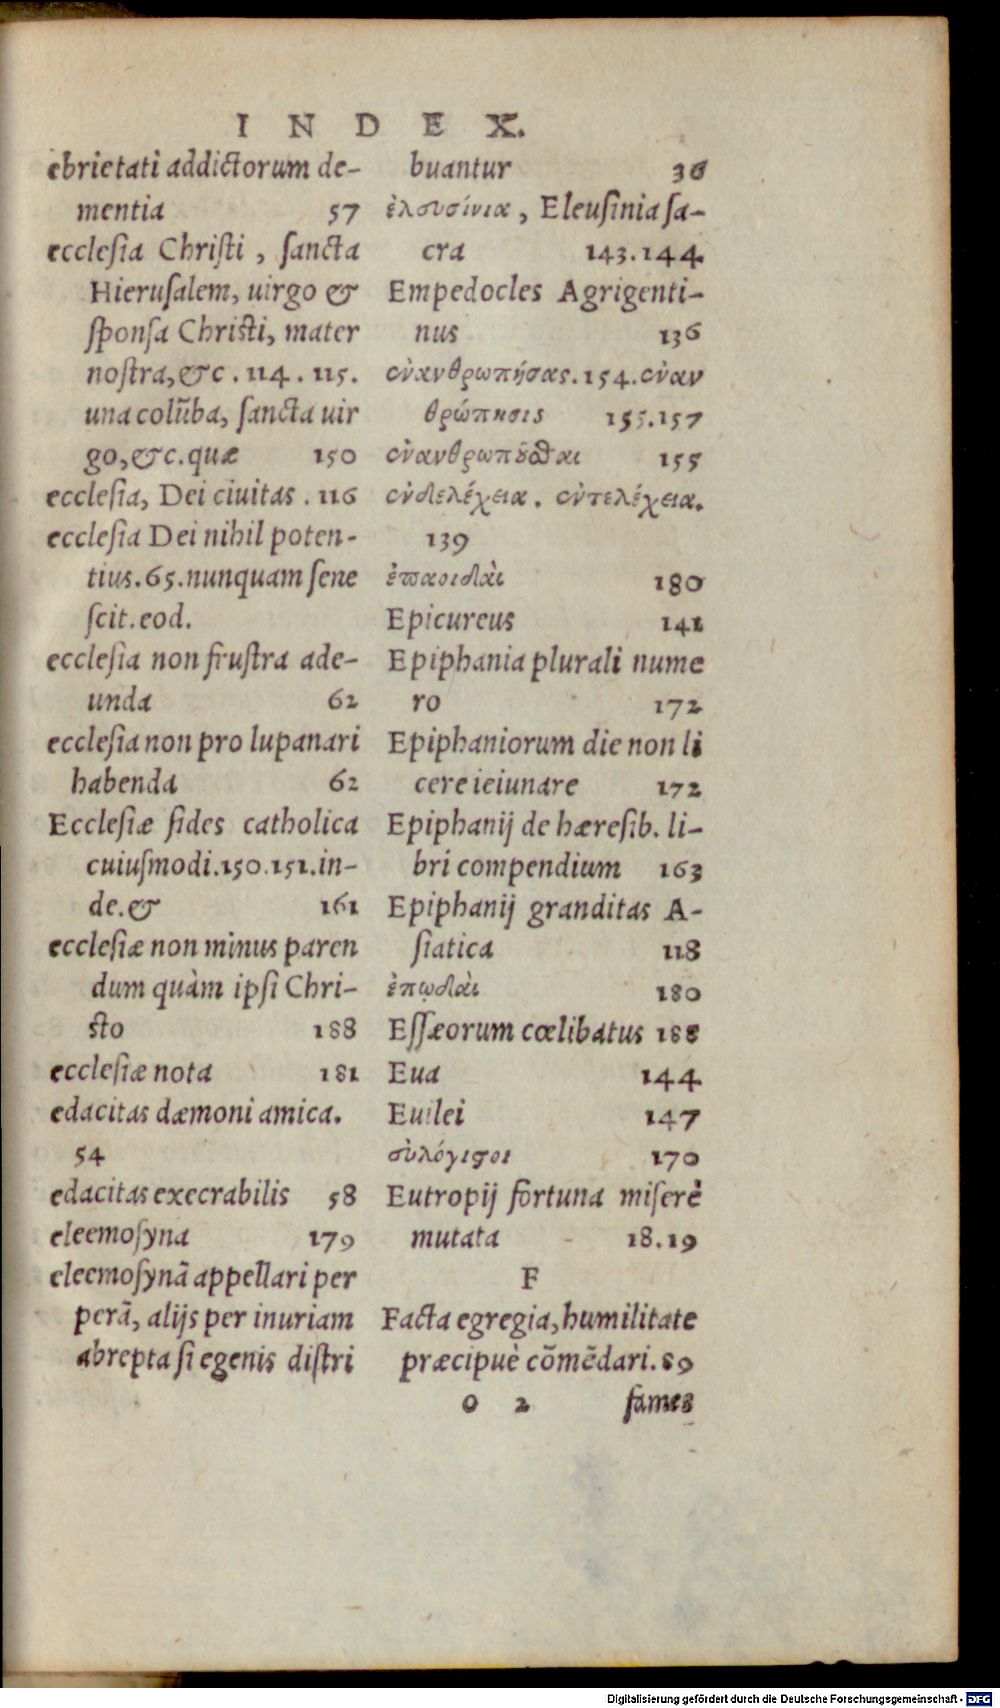 INDEX.
ebrietati addictorum de-
mentia 57
ecclesia Christi, sancta
Hierusalem, uirgo &
sponsa Christi, mater
nostra, &c. 114. 115.
una colũba, sancta uir
go, &c. quæ 150
ecclesia, Dei ciuitas. 116
ecclesia Dei nihil poten-
tius. 65. nunquam sene
scit. eod.
ecclesia non frustra ade-
unda 62
ecclesia non pro lupanari
habenda 62
Ecclesiæ fides catholica
cuiusmodi. 150. 151. in-
de. & 161
ecclesiæ non minus paren
dum quàm ipsi Chri-
sto 188
ecclesiæ nota 181
edacitas dæmoni amica.
54
edacitas execrabilis 58
eleemosyna 179
eleemosynã appellari per
perã, alijs per inuriam
abrepta si egenis distri
buantur 36
ἐλουσίνια, Eleusinia sa-
cra 143. 144.
Empedocles Agrigenti-
nus 136
ἐνανθρωπήσας. 154. ἐναν
θρώπησις 155. 157
ἐνανθρωπῆσθαι 155
ἐνδελέχεια. ἐντελέχεια.
139
ἐπαοιδαὶ 180
Epicureus 141
Epiphania plurali nume
ro 172
Epiphaniorum die non li
cere ieiunare 172
Epiphanij de hæresib. li-
bri compendium 163
Epiphanij granditas A-
siatica 118
ἐπῳδαὶ 180
Essæorum cœlibatus 188
Eua 144
Euilei 147
εὐλόγιστοι 170
Eutropij fortuna miserè
mutata 18. 19
F
Facta egregia, humilitate
præcipuè cõmẽdari. 89
o 2 fames
Digitalisierung gefördert durch die Deutsche Forschungsgemeinschaft - DFG